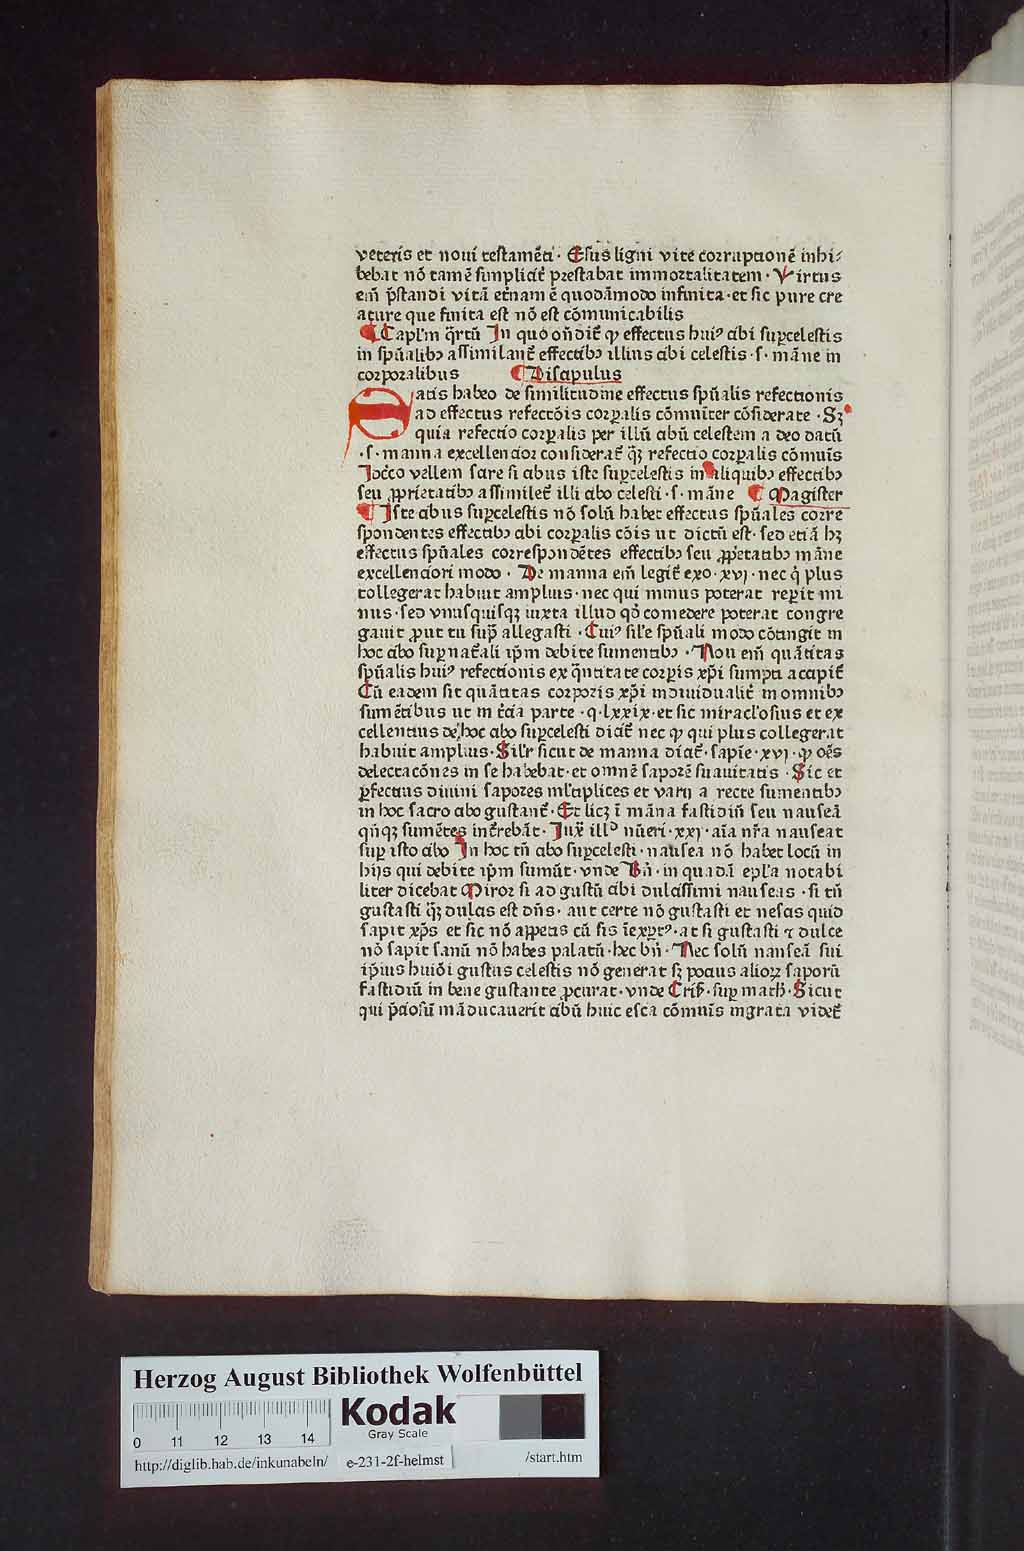 veteris et noui testamẽti · Esus ligni vite corruptionẽ inhi⸗
bebat nõ tamẽ simplicit̃ prestabat immortalitatem · Virtus
em̃ p̃standi vitã et̃nam ẽ quodãmodo infinita · et sic pure cre
ature que finita est nõ est cõmunicabilis
¶ Capl'm q̃rtũ In quo oñdit̃ ꝙ effectus huiꝰ cibi suꝑcelestis
in spũalibꝫ assimilant̃ effectibꝫ illius cibi celestis · s · mãne in
corporalibus ¶ Discipulus
Satis habeo de similitudine effectus spũalis refectionis
ad effectus refectõis corꝑalis cõmuĩter cõsiderate · Sꝫ
quia refectio corꝑalis per illũ cibũ celestem a deo datũ
· s · manna excellencior considerat̃ q̃ꝫ refectio corꝑalis cõmuĩs
Iocc̃o vellem scire si cibus iste suꝑcelestis in aliquibꝫ effectibꝫ
seu ꝓprietatibꝫ assimilet̃ illi cibo celesti · s · mãne ¶ Magister
¶ Iste cibus suꝑcelestis nõ solũ habet effectus spũales corre
spondentes effectibꝫ cibi corꝑalis cõis ut dictũ est · sed etiã hꝫ
effectus spũales correspondẽtes effectibꝫ seu ꝓp̃etatibꝫ mãne
excellenciori modo · De manna em̃ legit̃ exo · xvj · nec q̇ plus
collegerat habuit amplius · nec qui minus poterat reꝑit mi
nus · sed vnusquisqꝫ iuxta illud qd̃ comedere poterat congre
gauit ꝓut tu sup̃ allegasti · Cuiꝰ sil'e spũali modo cõtingit in
hoc cibo suꝑnat̃ali ip̃m debite sumentibꝫ · Non em̃ quãtitas
spũalis huiꝰ refectionis ex q̃ntitate corꝑis xp̃i sumpti accipit̃
Cũ eadem sit quãtitas corporis xp̃i indiuidualit̃ in omnibꝫ
sumẽtibus ut in t̃cia parte · q · lxxix · et sic miracl'osius et ex
cellentius de hoc cibo suꝑcelesti dicit̃ nec ꝙ qui plus collegerat
habuit amplius · Sil'r sicut de manna dicit̃ · sapĩe · xvj · ꝙ oẽs
delectacõnes in se habebat · et omnẽ saporẽ suauitatis · Sic et
ꝑfectius diuini sapores ml'tiplices et varij a recte sumentibꝫ
in hoc sacro cibo gustant̃ · Et licꝫ ĩ mãna fastidiũ seu nauseã
qñqꝫ sumẽtes incr̃rebãt · Iux̃ illᵈ nũeri · xxj · aĩa nr̃a nauseat
suꝑ isto cibo In hoc tñ cibo suꝑcelesti · nausea nõ habet locũ in
hijs qui debite ip̃m sumũt · vnde Bñ · in quadã epl'a notabi
liter dicebat Miror si ad gustũ cibi dulcissimi nauseas · si tñ
gustasti q̃ꝫ dulcis est dñs · aut certe nõ gustasti et nescis quid
sapit xp̃s et sic nõ appetis cũ sis ĩexꝑtꝰ · at si gustasti ⁊ dulce
nõ sapit sanũ nõ habes palatũ · hec bñ · Nec solũ nauseã sui
ip̃ius huiõi gustus celestis nõ generat sꝫ pocius alioꝝ saporũ
fastidiũ in bene gustante ꝓcurat · vnde Cris̃ · suꝑ math̃ · Sicut
qui p̃ciosũ mãducauerit cibũ huic esca cõmuĩs ingrata videt̃
Herzog August Bibliothek Wolfenbüttel
Kodak
Gray Scale
0 11 12 13 14
http://diglib.hab.de/inkunabeln/ e-231-2f-helmst /start.htm